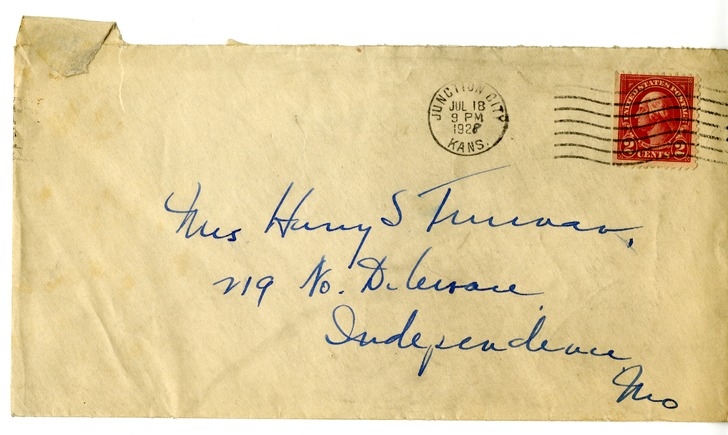 JUNCTION CITY
JUL 18
9 PM
KANS.
UNITED STATES POSTAGE
2 CENTS 2
Mrs Harry S Truman,
219 No. Delaware
Independence
Mo